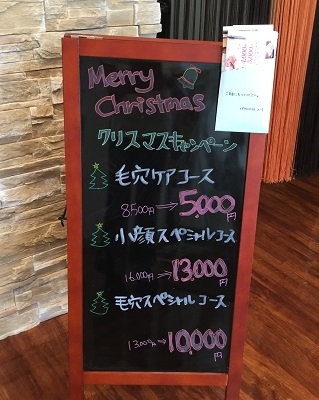 Merry
Christmas
クリスマスキャンペーン
毛穴ケアコース
8500円→5,000円
小顔スペシャルコース
16,000円→13,000円
毛穴スペシャルコース
13,000円→10,000円